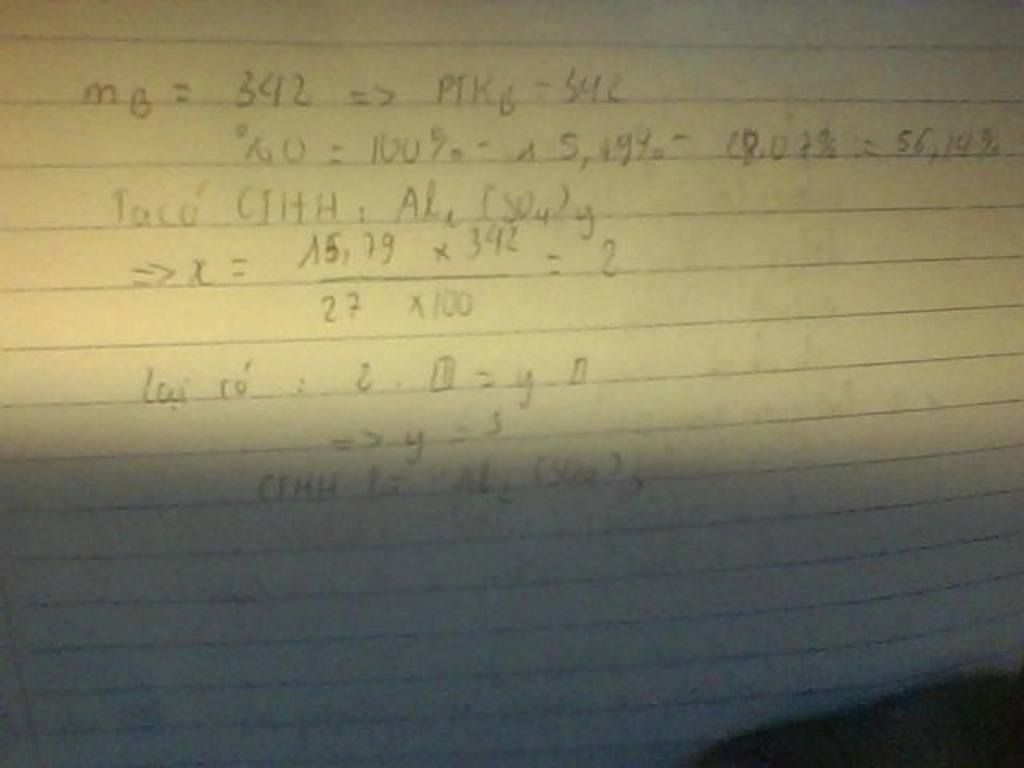 m_B = 342 => PTK_B = 342
%O = 100% - 15,79% - 28,07% = 56,14%
Ta có CTHH: Al_x (SO_4)_y
=> x = \frac{15,79 \times 342}{27 \times 100} = 2
Lại có : 2 . III = y II
=> y = 3
CTHH là Al_2 (SO_4)_3